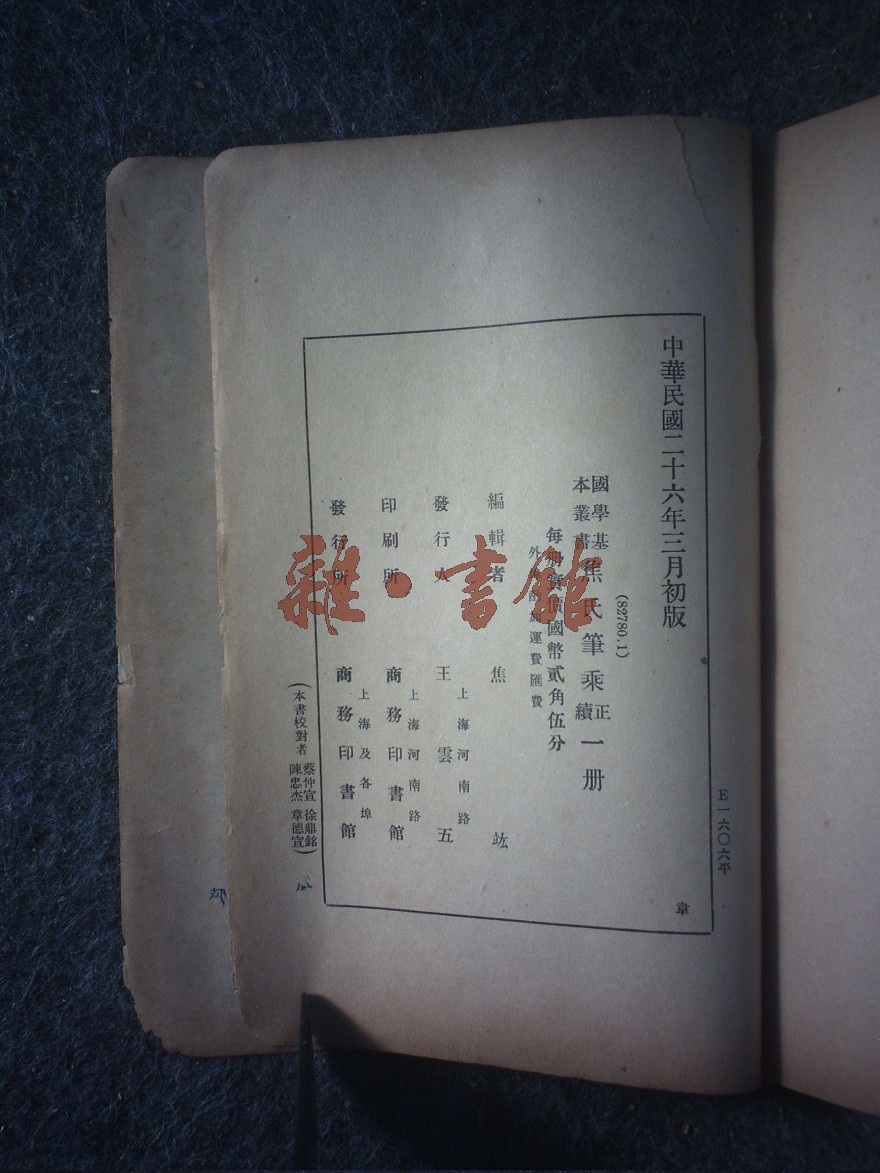 中華民國二十六年三月初版
(82780.1)
國學基本叢書 焦氏筆乘 正續 一册
每册實價國幣貳角伍分
外埠酌加運費匯費
編輯者 焦竑
發行人 王雲五
上海河南路
印刷所 商務印書館
上海河南路
發行所 商務印書館
上海及各埠
(本書校對者 蔡仲宣 徐鼎銘 陳忠杰 章德宣)
E一六〇六平
章
雜·書館